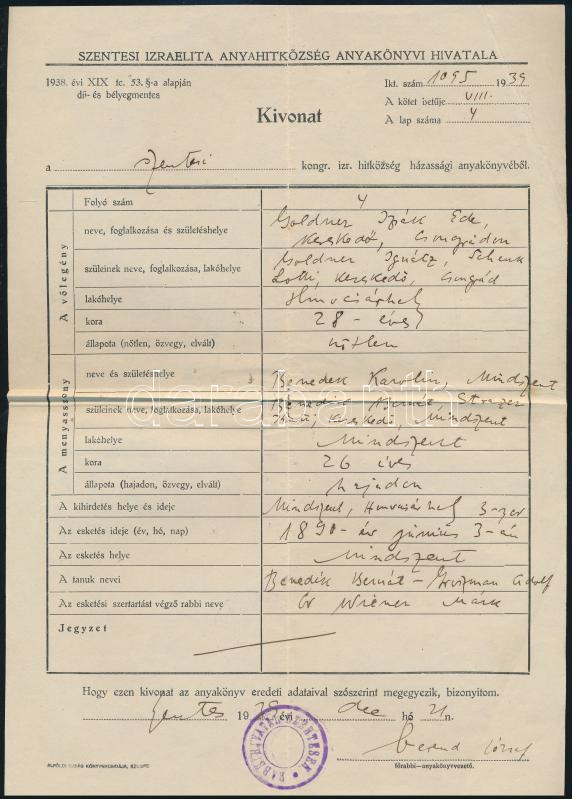 SZENTESI IZRAELITA ANYAHITKÖZSÉG ANYAKÖNYVI HIVATALA
1938. évi XIX tc. 53. §-a alapján
díj- és bélyegmentes
Ikt. szám 1095 1939
A kötet betűje VIII.
A lap száma 4
Kivonat
a szentesi kongr. izr. hitközség házassági anyakönyvéből.
A vőlegény
Folyó szám 4
neve, foglalkozása és születéshelye Goldner Izsák Ede,
kereskedő, Csongrádon
szüleinek neve, foglalkozása, lakóhelye Goldner Ignátz, Schenk
Lotti, kereskedő, Csongrád
lakóhelye Hmvásárhely
kora 28 - éves
állapota (nőtlen, özvegy, elvált) nőtlen
A menyasszony
neve és születéshelye Benedek Karolin, Mindszent
szüleinek neve, foglalkozása, lakóhelye Benedek
kereskedő, Mindszent
lakóhelye Mindszent
kora 26 éves
állapota (hajadon, özvegy, elvált) hajadon
A kihirdetés helye és ideje Mindszent, Hmvásárhely 3-szor
Az esketés ideje (év, hó, nap) 1890 - év június 3-án
Az esketés helye Mindszent
A tanuk nevei Benedek Bernát - Adolf
Az esketési szertartást végző rabbi neve Dr Wiener Márk
Jegyzet
darabanth
Hogy ezen kivonat az anyakönyv eredeti adataival szószerint megegyezik, bizonyitom.
Szentes 1939 évi dec hó 21n.
RABBIHIVATAL SZENTESEN
Berend József
főrabbi-anyakönyvvezető.